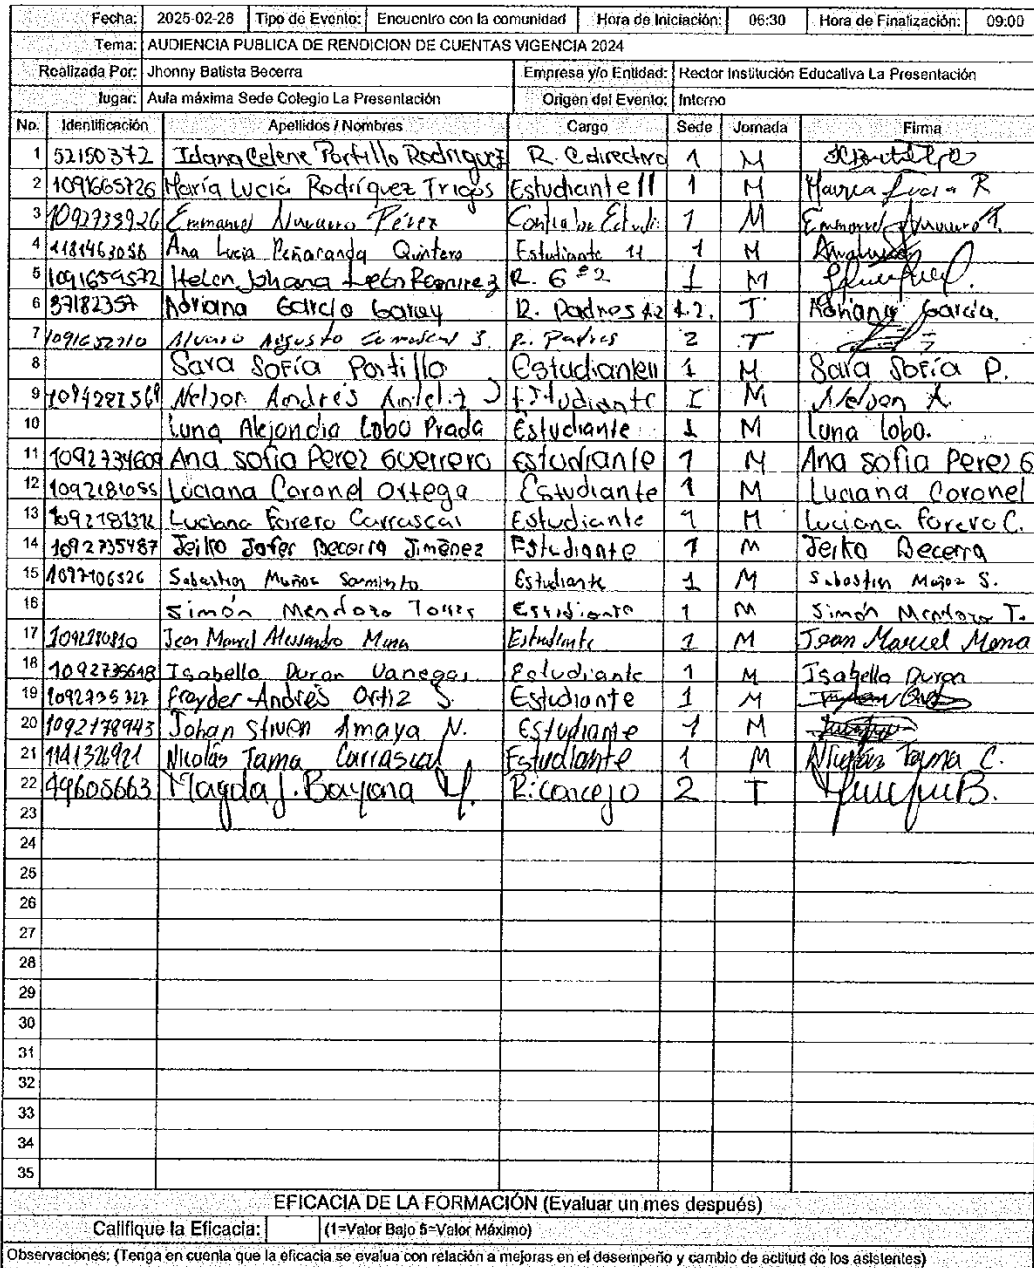 Fecha: 2025-02-28 Tipo de Evento: Encuentro con la comunidad Hora de Iniciación: 06:30 Hora de Finalización: 09:00
Tema: AUDIENCIA PUBLICA DE RENDICION DE CUENTAS VIGENCIA 2024
Realizada Por: Jhonny Batista Becerra Empresa y/o Entidad: Rector Institución Educativa La Presentación
lugar: Aula máxima Sede Colegio La Presentación Origen del Evento: Interno
No. Identificación Apellidos / Nombres Cargo Sede Jornada Firma
1 52150372 Idana Celene Portillo Rodriguez R. 1 M
2 1091665726 María Lucía Rodríguez Trigos Estudiante 11 1 M Maria Lucia R
3 1092733926 Emmanuel Navarro Pérez 1 M Emmanuel Navarro P.
4 Ana Lucia Peñaranda Quintero Estudiante 11 1 M
5 1091659572 Helen Johana León Ramirez R. 6#2 1 M
6 37182357 Adriana Garcia Garay R. Padres 1.2. T Adriana Garcia.
7 Alvaro Augusto R. Padres 2 T
8 Sara Sofía Portillo Estudiante 11 1 M Sara Sofía P.
9 Nelson Andrés Estudiante I M Nelson A.
10 Luna Alejandra Lobo Prada Estudiante 1 M Luna lobo.
11 1092734609 Ana Sofia Perez Guerrero Estudiante 1 M Ana Sofia Perez G
12 1092181055 Luciana Coronel Ortega Estudiante 1 M Luciana Coronel
13 Luciana Forero Carrascal Estudiante 1 M Luciana forero C.
14 1092735487 Jeiko Jofer Becerra Jimènez Estudiante 1 M Jeiko Becerra
15 Sebastian Muñoz Sarmiento Estudiante 1 M Sebastian Muñoz S.
16 Simón Mendoza Torres Estudiante 1 M Simón Mendoza T.
17 Jean Marcel Alessandro Mena Estudiante 1 M Jean Marcel Mena
18 Isabella Duran Vanegas Estudiante 1 M Isabella Duran
19 1092735327 Frayder Andrés Ortiz S. Estudiante 1 M
20 1092178943 Johan Stiven Amaya N. Estudiante 1 M
21 Nicolás Tama Carrascal Estudiante 1 M Nicolás Tama C.
22 49605663 Magda J. Bayona R. concejo 2 T
23
24
25
26
27
28
29
30
31
32
33
34
35
EFICACIA DE LA FORMACIÓN (Evaluar un mes después)
Califique la Eficacia: (1=Valor Bajo 5=Valor Máximo)
Observaciones: (Tenga en cuenta que la eficacia se evalua con relación a mejoras en el desempeño y cambio de actitud de los asistentes)